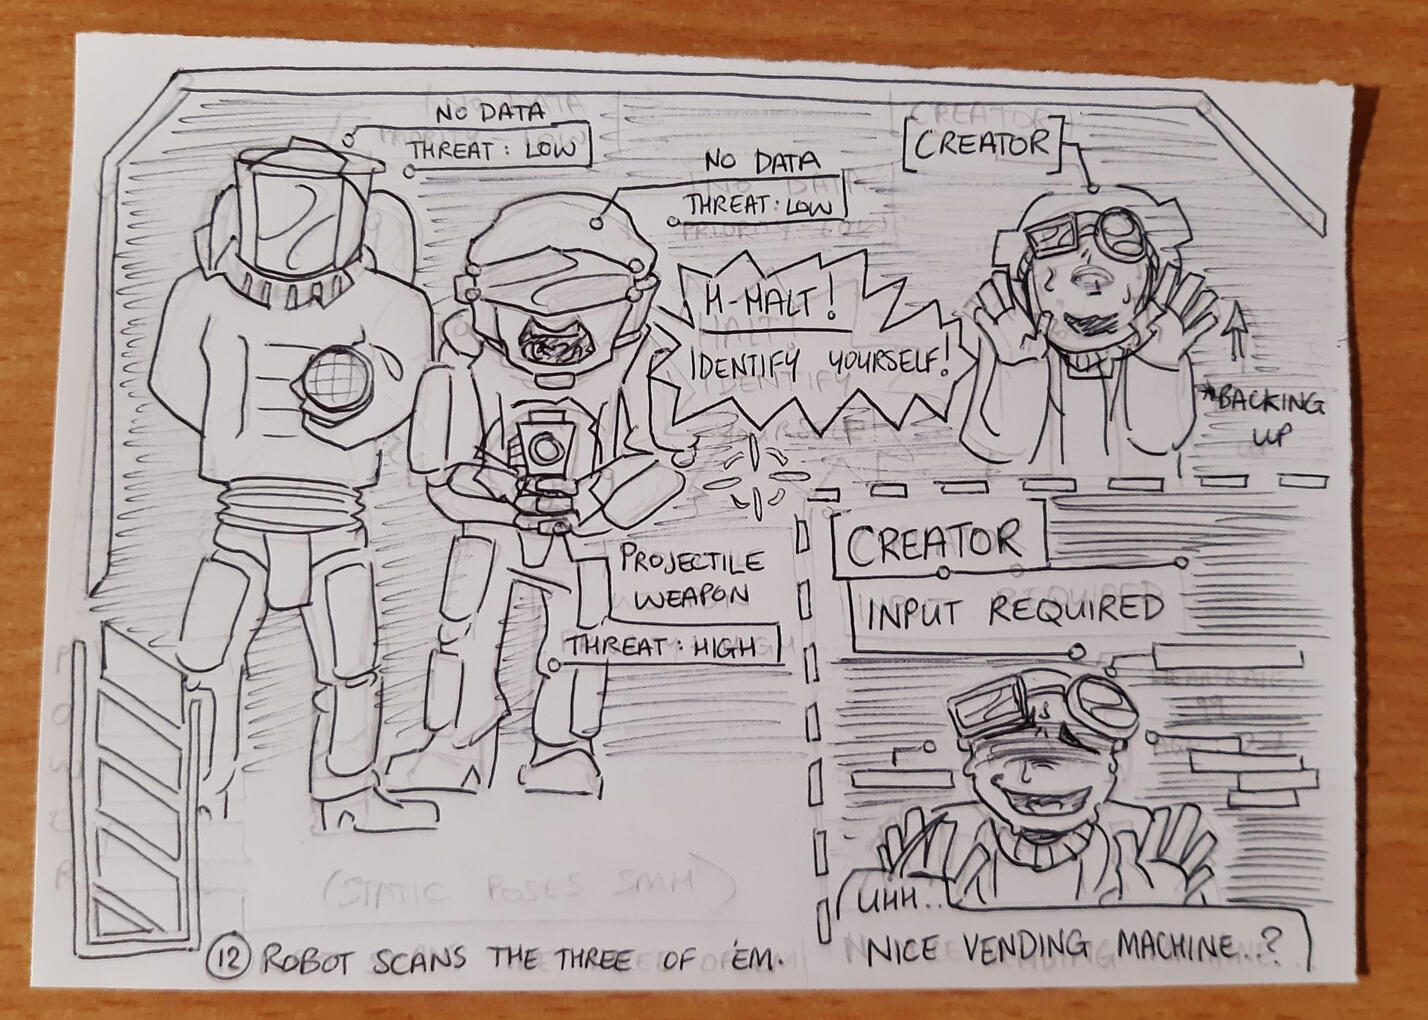 NO DATA
THREAT: LOW
NO DATA
THREAT: LOW
[CREATOR]
H-HALT!
IDENTIFY YOURSELF!
*BACKING
UP
PROJECTILE
WEAPON
THREAT: HIGH
CREATOR
INPUT REQUIRED
UHH..
NICE VENDING MACHINE..?
(STATIC POSES SMH)
12 ROBOT SCANS THE THREE OF 'EM.